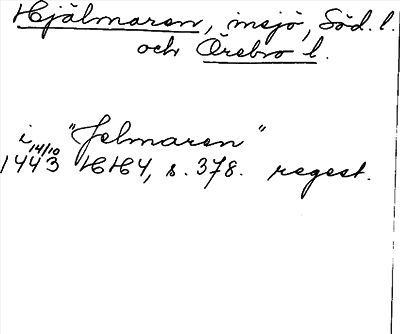 Hjälmaren, insjö, Söd. l.
och Örebro l.
i "Jelmaren"
14/10
1443 HH4, s. 378. regest.